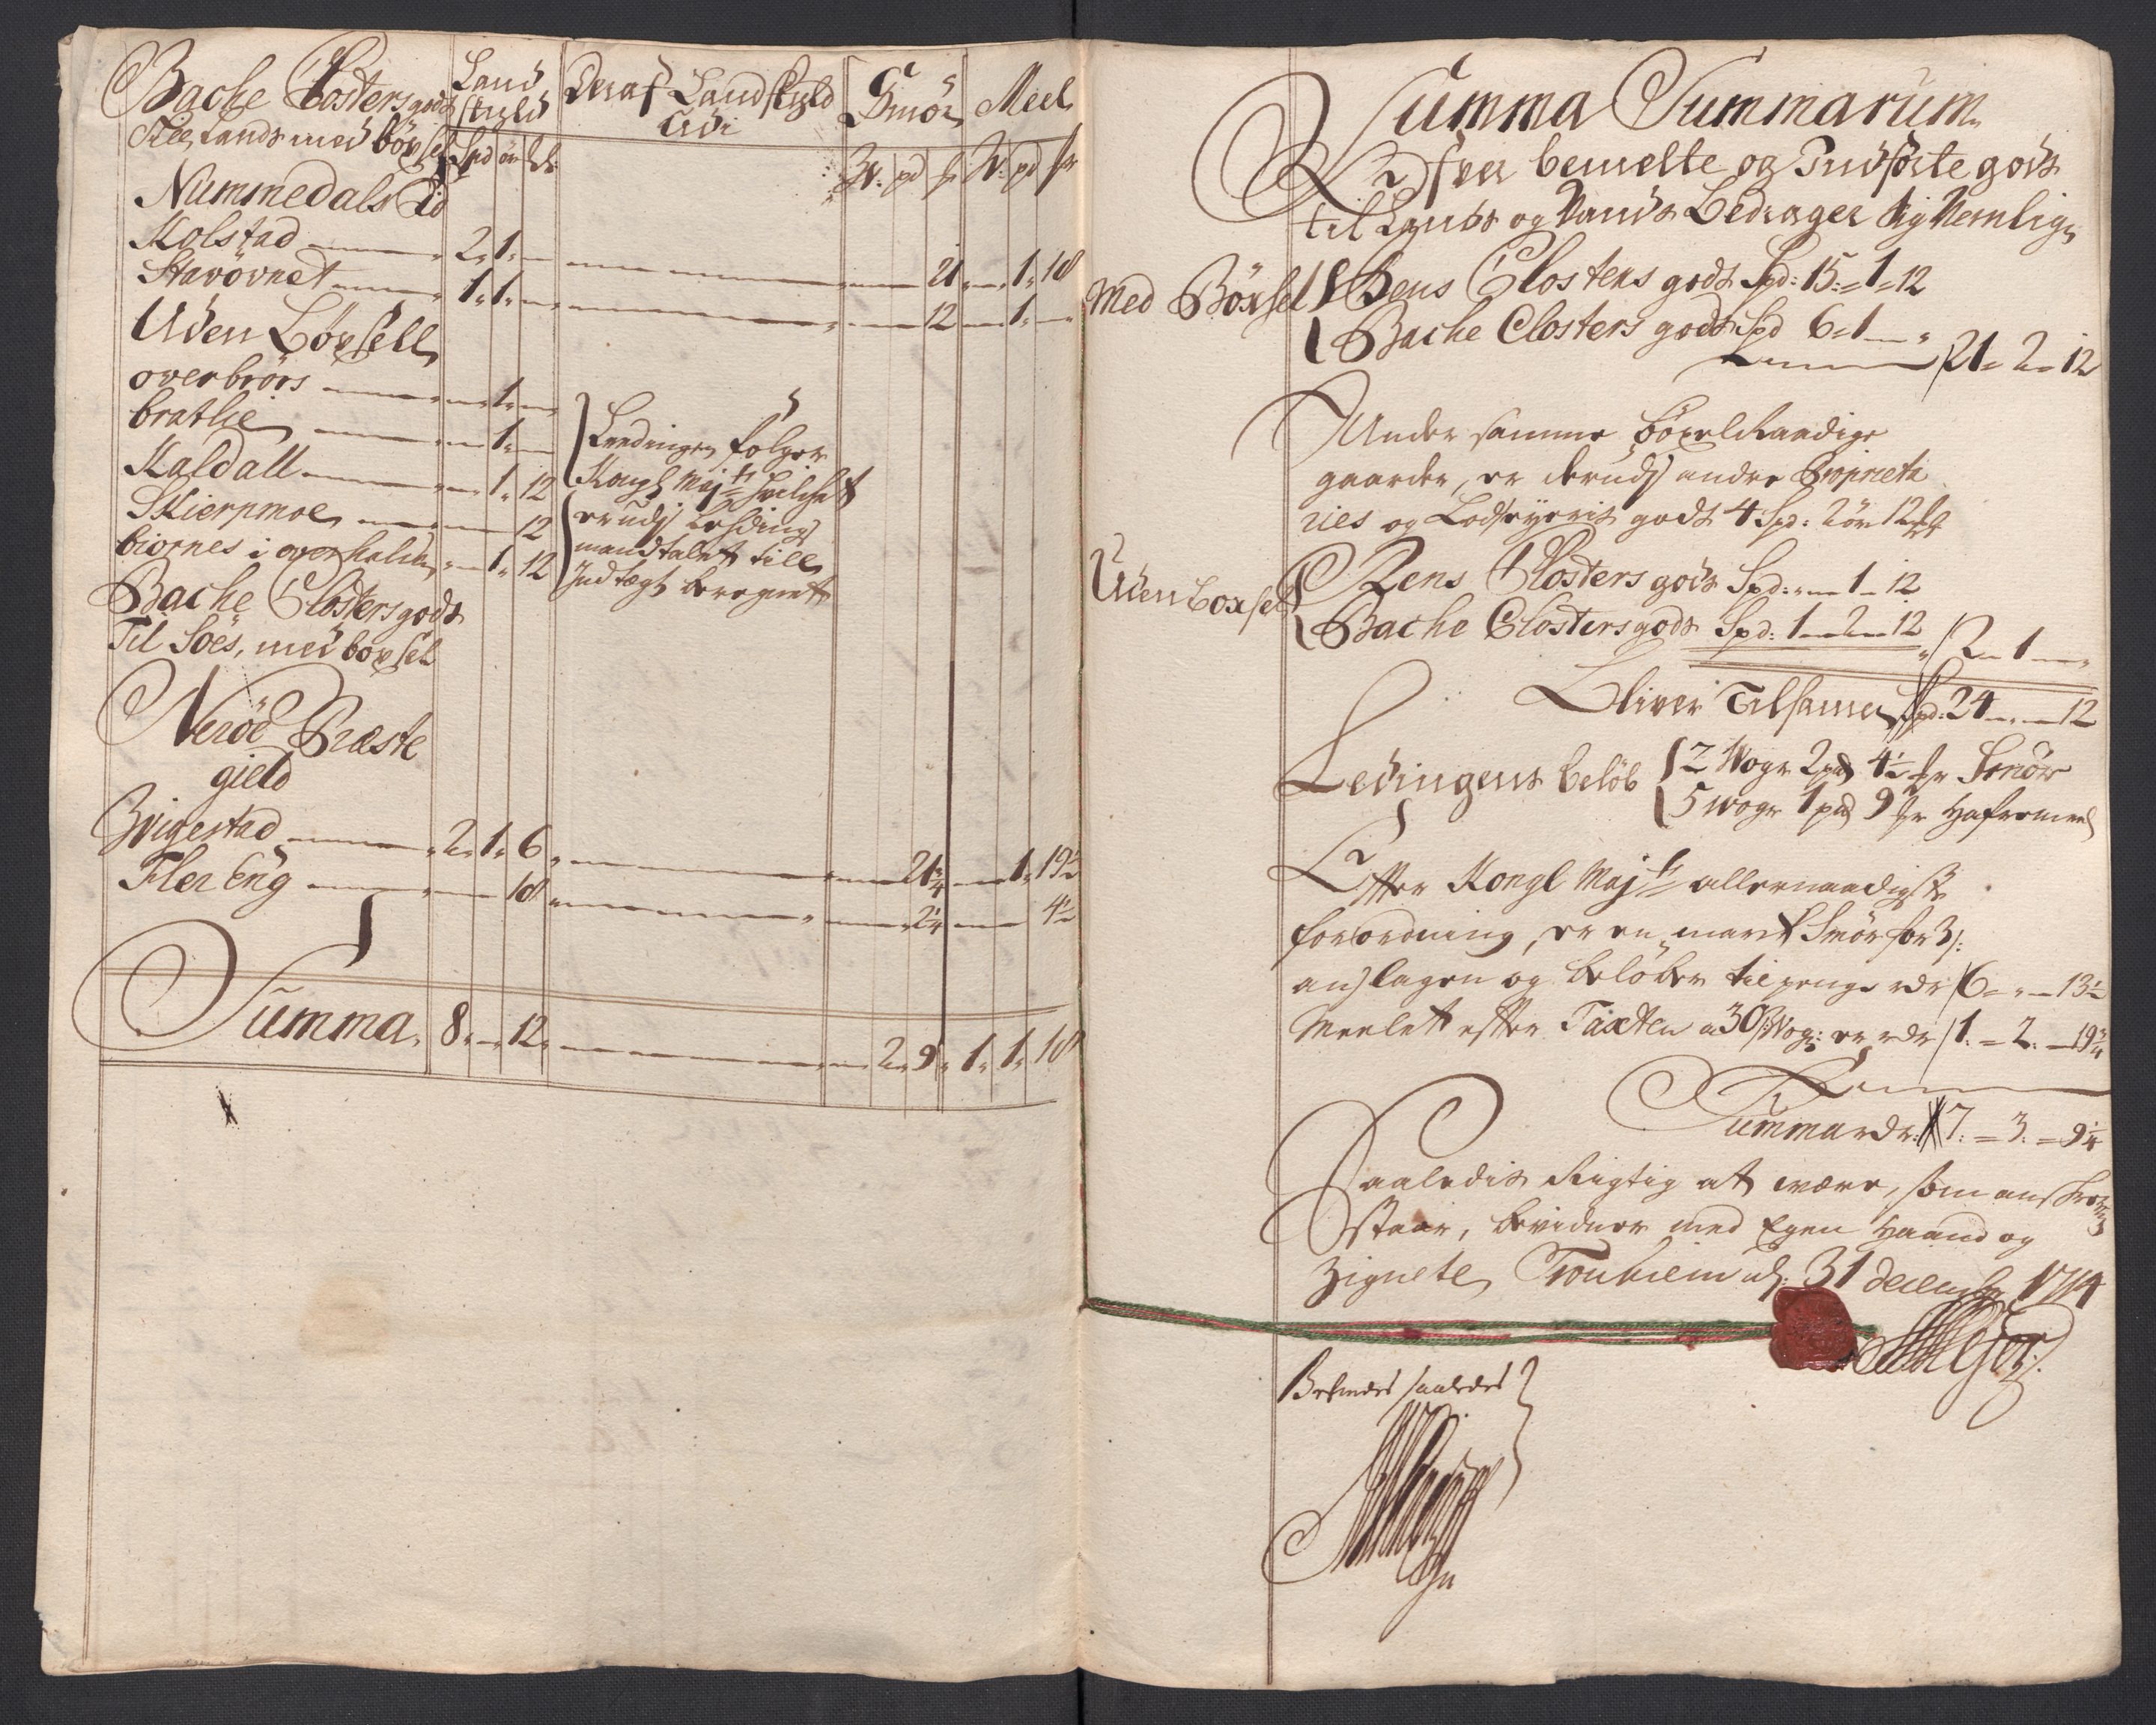 Bache Closters gods
Till Lands med böxsel
Land skyld
Spd ör
Deraf Landskyld
Udi
Smör
W: pd
Meel
W: pd
Nummedals
Molstad 2 1 21 1 18
Stavövnet 1 1 12 1
Uden Böxsell
overbrörs 1
bratlie 1
Kaldall 1 12
Skierpmoe 12
biornes i overhalden 1 12
Leedingen fölger
Kongl Maj hvilchet
er udj Lehdings
mandtalet till
Indtægt beregnet
Bache Closters gods
Til Söes, med böxsel
Neröe Præste
gield
Zvigestad 2 1 6 21¾ 1 19½
Fler Eng 18 2¼ 4½
Summa 8 12 2 9 1 1 18
Summa Summarum
Ofver bemelte og Indförte gods
til Lands og Vands Bedrager Sig Nemlig
Med Böxsel
Rens Closters gods Spd: 15 = 1 = 12
Bache Closters gods Spd 6 = 1
21 = 2 = 12
Under samme böxelRaadige
gaarder, er derudj andre Proprieta
ries og Lodseyeris gods 4 Spd: 2 ör 12
Uden Böxsel
Rens Closters gods Spd: 1 12
Bache Closters gods Spd: 1 2 12
2 1
Bliver Tilsamen Spd: 24 12
Ledingens belöb
2 Woger 2 pd 4½ Smör
5 Woger 1 pd 9 Hafremeel
Effter Kongl Maj allernaadigste
forordning, er en mark Smör for 3
anslagen og belöber til penge rdr 6 13½
Meelet effter Taxten a 30 Wog: er rdr 1. = 2. 19¾
Summa rdr: 7. = 3. = 9¼
Saaledis Rigtig at være, som anfört
staar, bevidner med Egen Haand og
Zignete Tronhiem 31 december 1714
Befindes saaledes